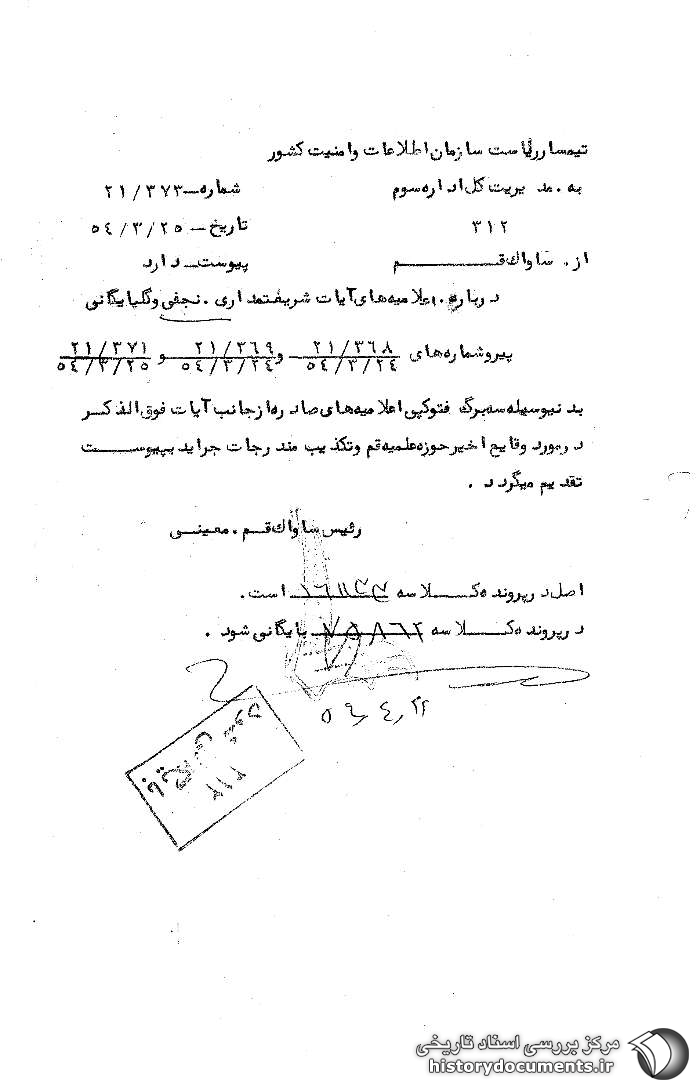 تیمسار ریاست سازمان اطلاعات و امنیت کشور
به . مدیریت کل اداره سوم شماره ـ ۲۱/۳۷۳
۳۱۲ تاریخ ـ ۵۴/۳/۲۵
از . ساواک قم پیوست دارد
درباره . اعلامیه های آیات شریعتمداری . نجفی و گلپایگانی
پیرو شماره های ۲۱/۳۶۸ ۵۴/۳/۲۴ و ۲۱/۳۶۹ ۵۴/۳/۲۴ و ۲۱/۳۷۱ ۵۴/۳/۲۵
بدنیوسیله سه برگ فتوکپی اعلامیه های صادره از جانب آیات فوق الذکر
در مورد وقایع اخیر حوزه علمیه قم و تکذیب مندرجات جراید بپیوست
تقدیم میگردد .
رئیس ساواک قم . معینی
اصل در پرونده کلاسه است .
در پرونده کلاسه ۷۵۸۶۲ بایگانی شود .
بایگانی شود
۳۱۲
مرکز بررسی اسناد تاریخی
historydocuments.ir